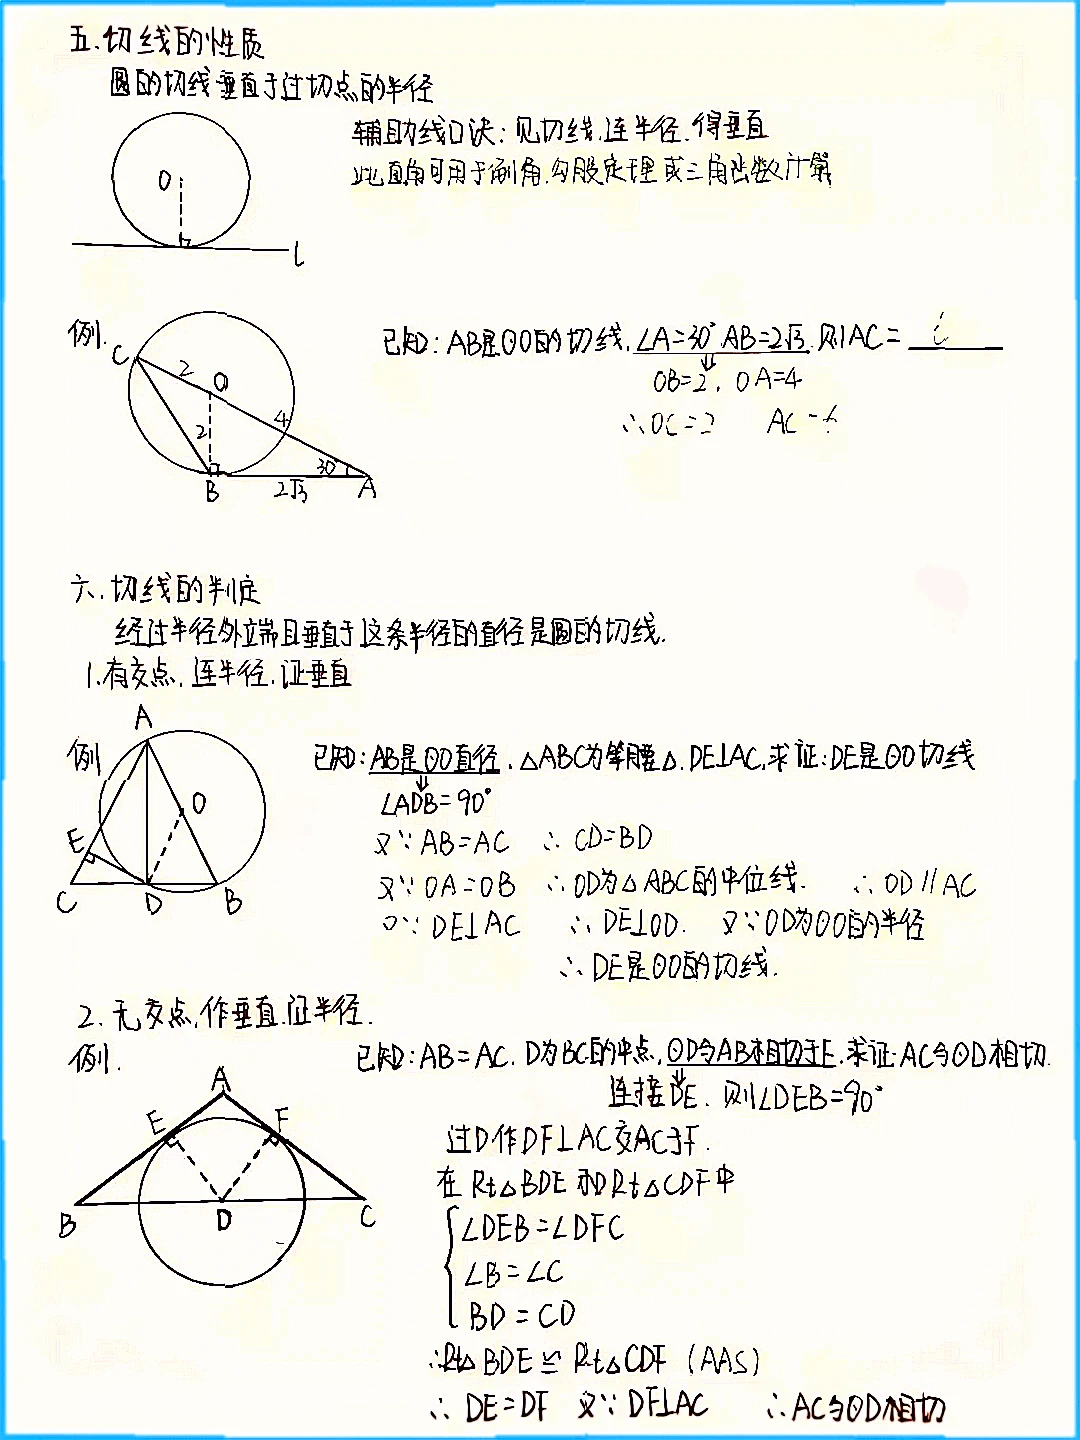 五.切线的性质
圆的切线垂直于过切点的半径
辅助线口诀:见切线.连半径.得垂直
此直角可用于倒角.勾股定理或三角函数计算
O
l
例.
已知:AB是⊙O的切线.∠A=30° AB=2√3.则AC=
OB=2, OA=4
∴OC=2 AC=
C
2
O
4
2
30°
B
2√3
A
六.切线的判定
经过半径外端且垂直于这条半径的直径是圆的切线.
1.有交点.连半径.证垂直
A
例
已知:AB是⊙O直径.△ABC为等腰△.DE⊥AC,求证:DE是⊙O切线
∠ADB=90°
又∵AB=AC ∴CD=BD
又∵OA=OB ∴OD为△ABC的中位线. ∴OD∥AC
又∵DE⊥AC ∴DE⊥OD. 又∵OD为⊙O的半径
∴DE是⊙O的切线.
O
E
C
D
B
2.无交点.作垂直.证半径.
例.
已知:AB=AC.D为BC的中点,⊙D与AB相切于E.求证:AC与⊙D相切.
连接DE.则∠DEB=90°
过D作DF⊥AC交AC于F.
在Rt△BDE和Rt△CDF中
∠DEB=∠DFC
∠B=∠C
BD=CD
∴Rt△BDE≌Rt△CDF(AAS)
∴DE=DF 又∵DF⊥AC ∴AC与⊙D相切
A
E
F
B
D
C